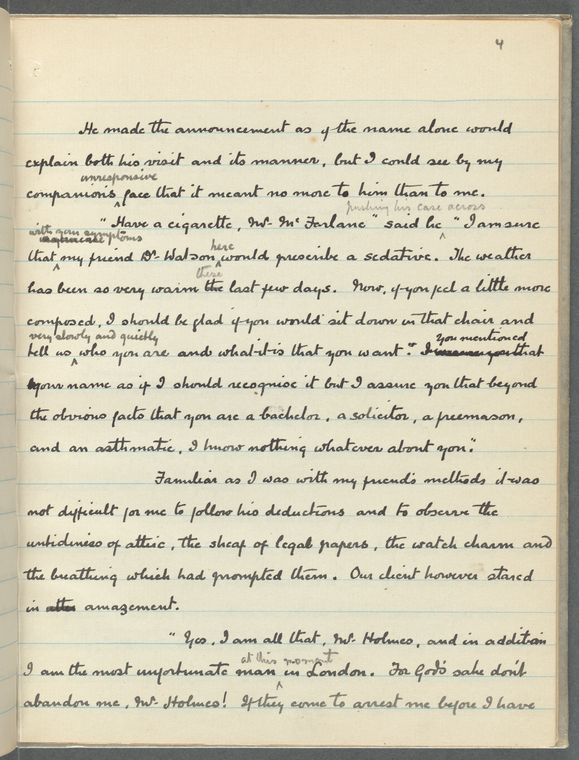 4
He made the announcement as if the name alone would
explain both his visit and its manner, but I could see by my
unresponsive
companion's face that it meant no more to him than to me.
pushing his case across
"Have a cigarette, Mr. McFarlane" said he "I am sure
with your symptoms
here
that my friend Dr. Watson would prescribe a sedative. The weather
these
has been so very warm the last few days. Now, if you feel a little more
composed, I should be glad if you would sit down in that chair and
very slowly and quietly
you mentioned
tell us who you are and what it is that you want." I that
your name as if I should recognise it but I assure you that beyond
the obvious facts that you are a bachelor, a solicitor, a freemason,
and an asthmatic, I know nothing whatever about you."
Familiar as I was with my friend's methods it was
not difficult for me to follow his deductions and to observe the
untidiness of attire, the sheaf of legal papers, the watch charm and
the breathing which had prompted them. Our client however stared
in amazement.
"Yes, I am all that, Mr. Holmes, and in addition
at this moment
I am the most unfortunate man in London. For God's sake don't
abandon me, Mr. Holmes! If they come to arrest me before I have